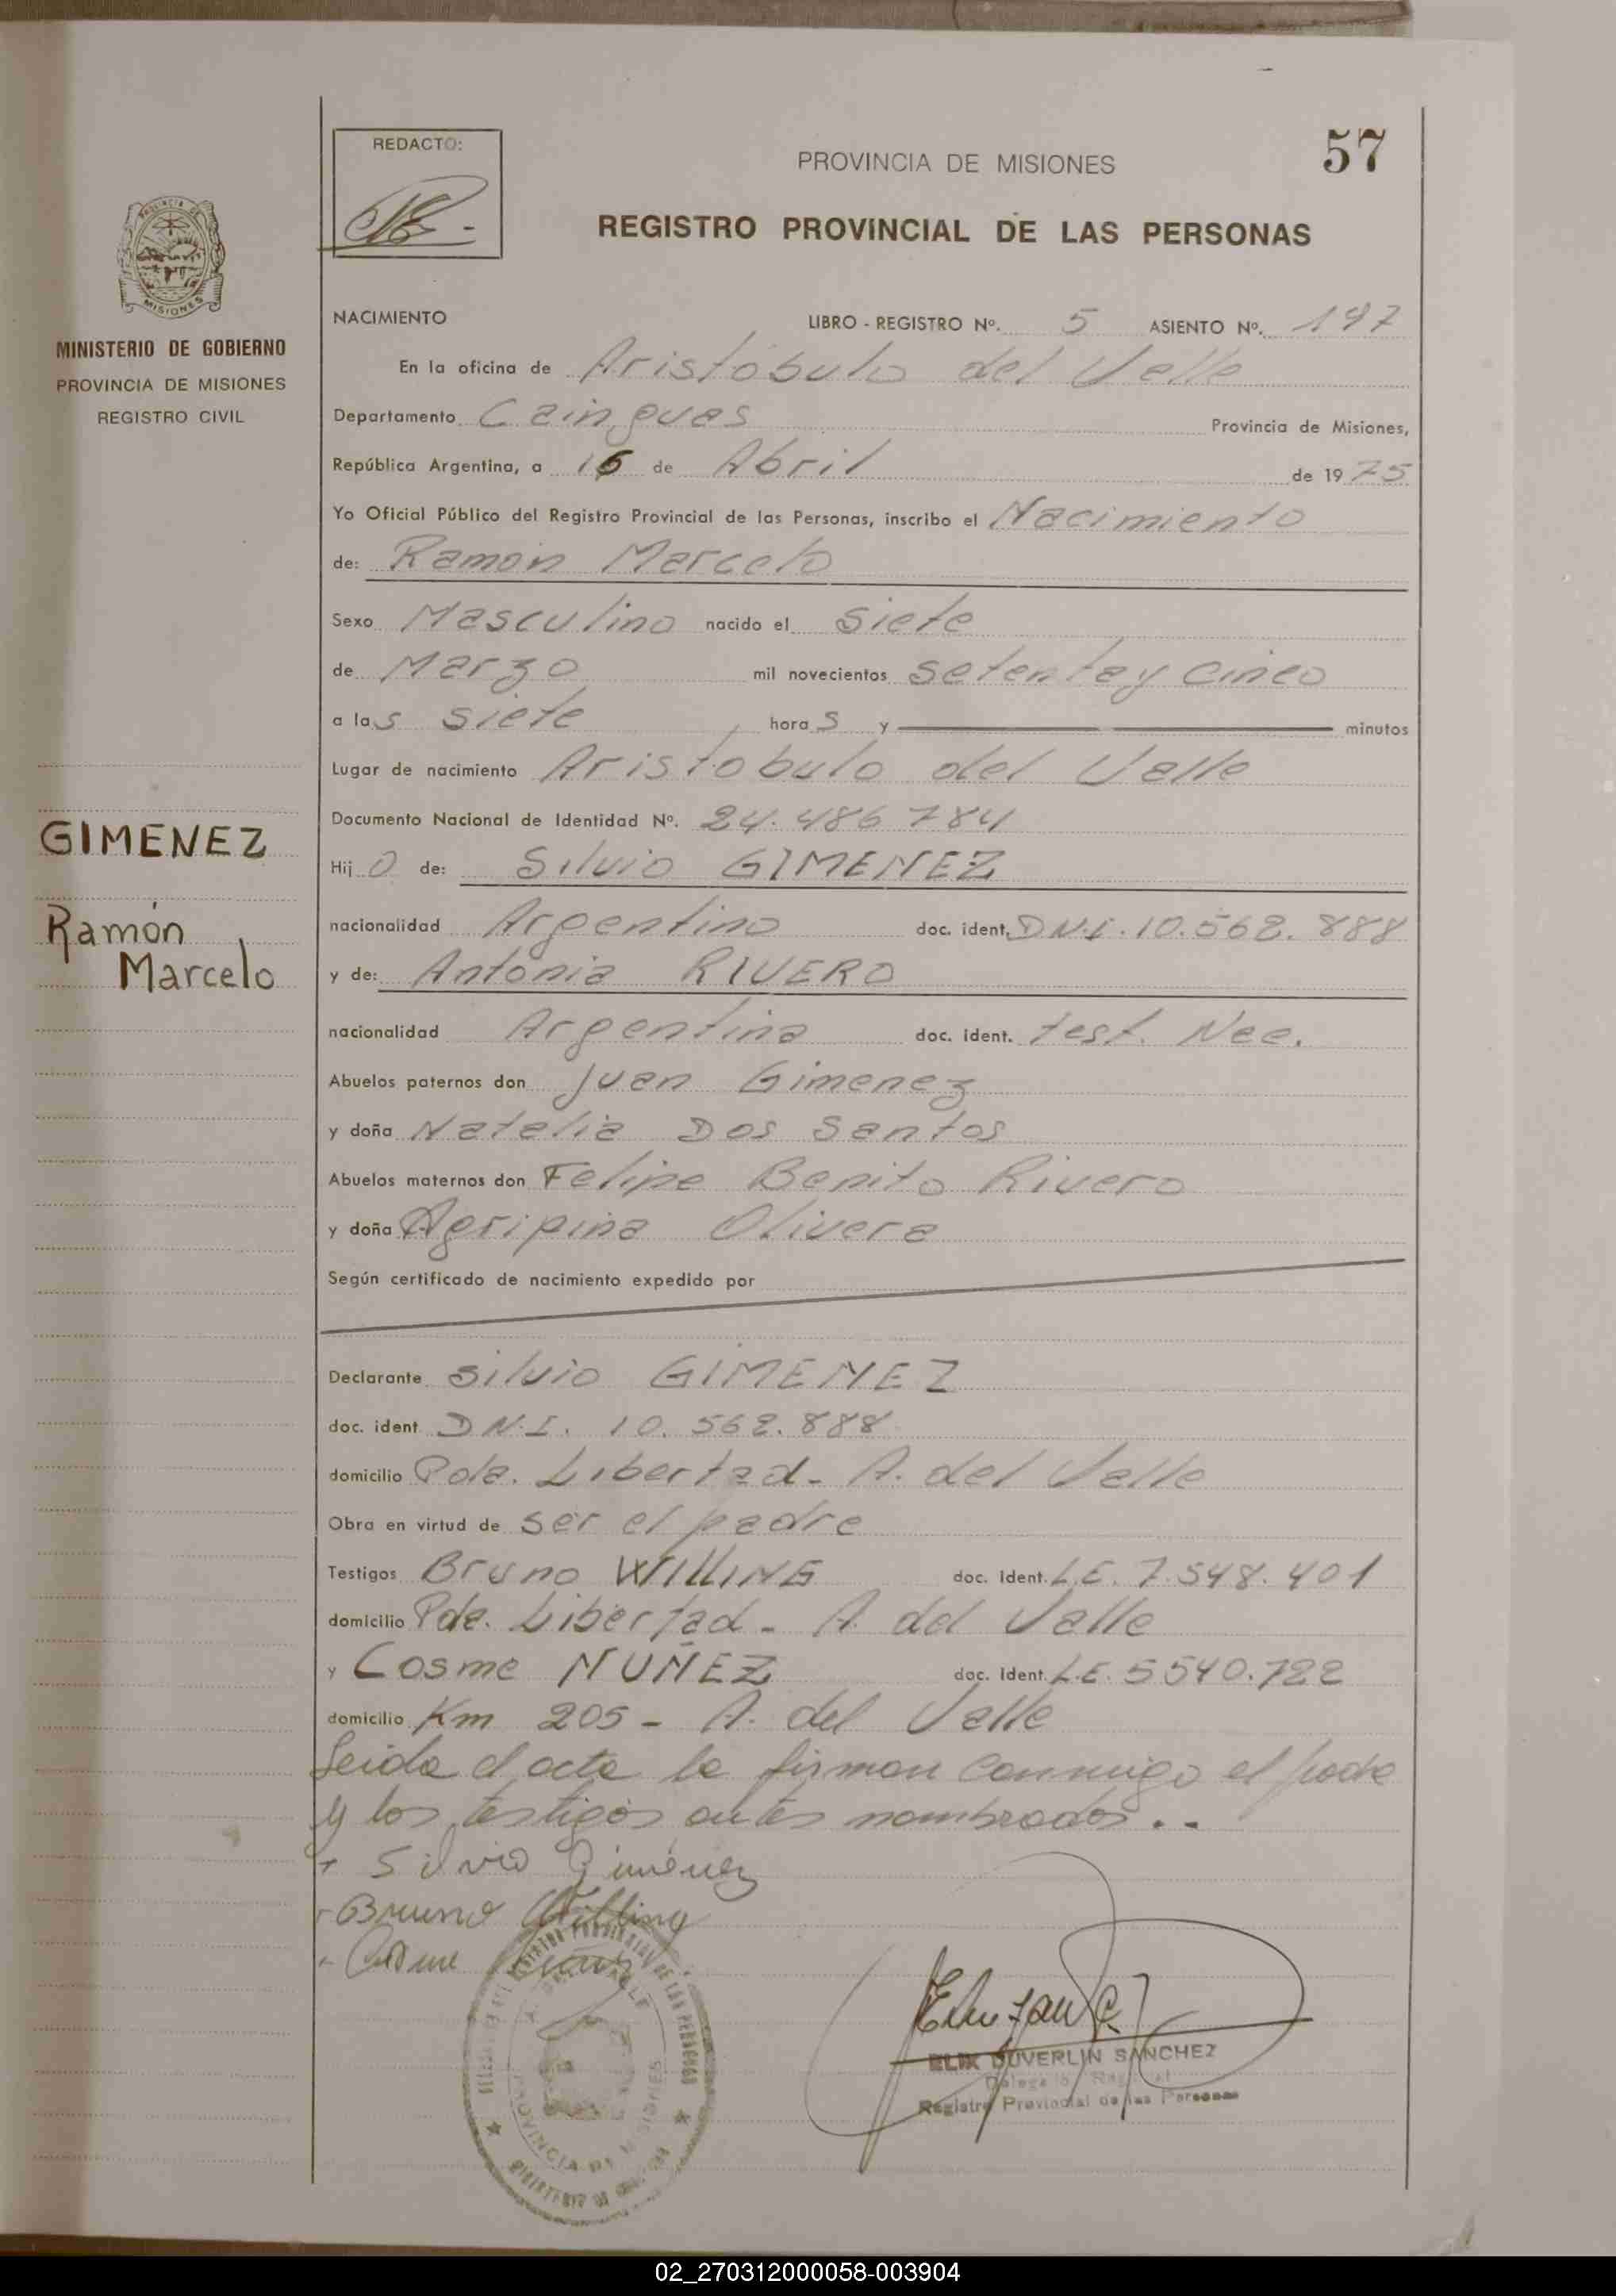 57
REDACTO:
PROVINCIA DE MISIONES
REGISTRO PROVINCIAL DE LAS PERSONAS
PROVINCIA DE
MISIONES
MINISTERIO DE GOBIERNO
PROVINCIA DE MISIONES
REGISTRO CIVIL
GIMENEZ
Ramón
Marcelo
NACIMIENTO LIBRO - REGISTRO Nº. 5 ASIENTO Nº. 197
En la oficina de Aristóbulo del Valle
Departamento Cainguas Provincia de Misiones,
República Argentina, a 16 de Abril de 1975
Yo Oficial Público del Registro Provincial de las Personas, inscribo el Nacimiento
de: Ramón Marcelo
Sexo Masculino nacido el siete
de Marzo mil novecientos setenta y cinco
a las siete horas y minutos
Lugar de nacimiento Aristóbulo del Valle
Documento Nacional de Identidad Nº. 24.486 784
Hijo de: Silvio GIMENEZ
nacionalidad Argentino doc. ident. D.N.I. 10.562.888
y de: Antonia RIVERO
nacionalidad Argentina doc. ident. test. Nec.
Abuelos paternos don Juan Gimenez
y doña Natalia Dos Santos
Abuelos maternos don Felipe Benito Rivero
y doña Agripina Olivera
Según certificado de nacimiento expedido por
Declarante Silvio GIMENEZ
doc. ident D.N.I. 10.562.888
domicilio Pda. Libertad - A. del Valle
Obra en virtud de ser el padre
Testigos Bruno WILLING doc. Ident. L.E. 7.548.401
domicilio Pda. Libertad - A. del Valle
y Cosme NUÑEZ doc. Ident. L.E. 5540.722
domicilio Km 205 - A. del Valle
Leida el acta la firman conmigo el padre
y los testigos antes nombrados..
Silvio Giménez
Bruno Willing
Cosme
ELIX DUVERLIN SANCHEZ
Registro Provincial de las Personas
PROVINCIA DE MISIONES
02_270312000058-003904